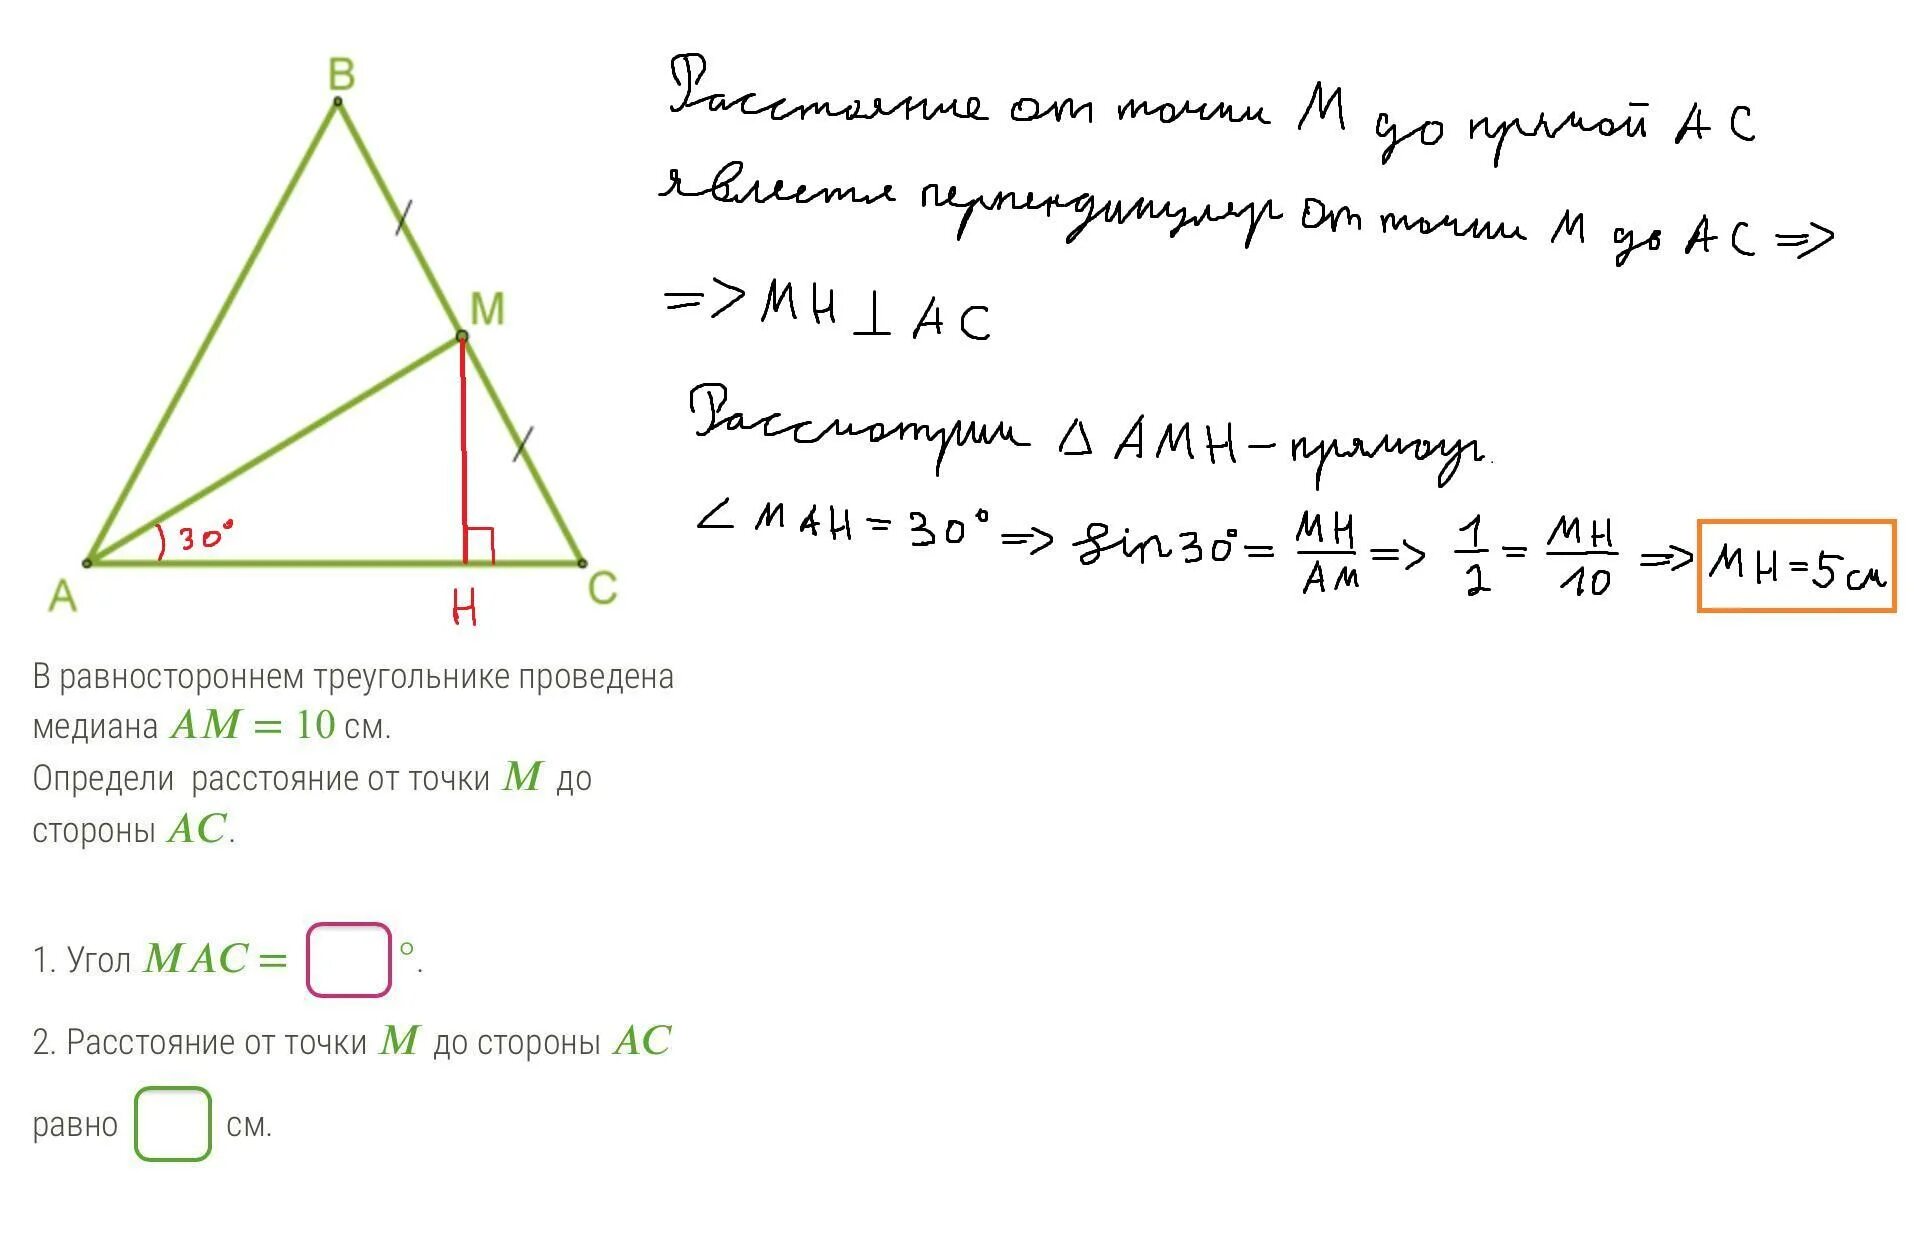 B
M
30°
A
H
C
Расстояние от точки M до прямой AC
является перпендикуляр от точки M до AC =>
=> MH ⊥ AC
Рассмотрим Δ AMH – прямоуг.
∠ MAH = 30° => sin30° = MH/AM => 1/2 = MH/10 => MH = 5 см
В равностороннем треугольнике проведена
медиана AM = 10 см.
Определи расстояние от точки M до
стороны AC.
1. Угол MAC = °.
2. Расстояние от точки M до стороны AC
равно см.